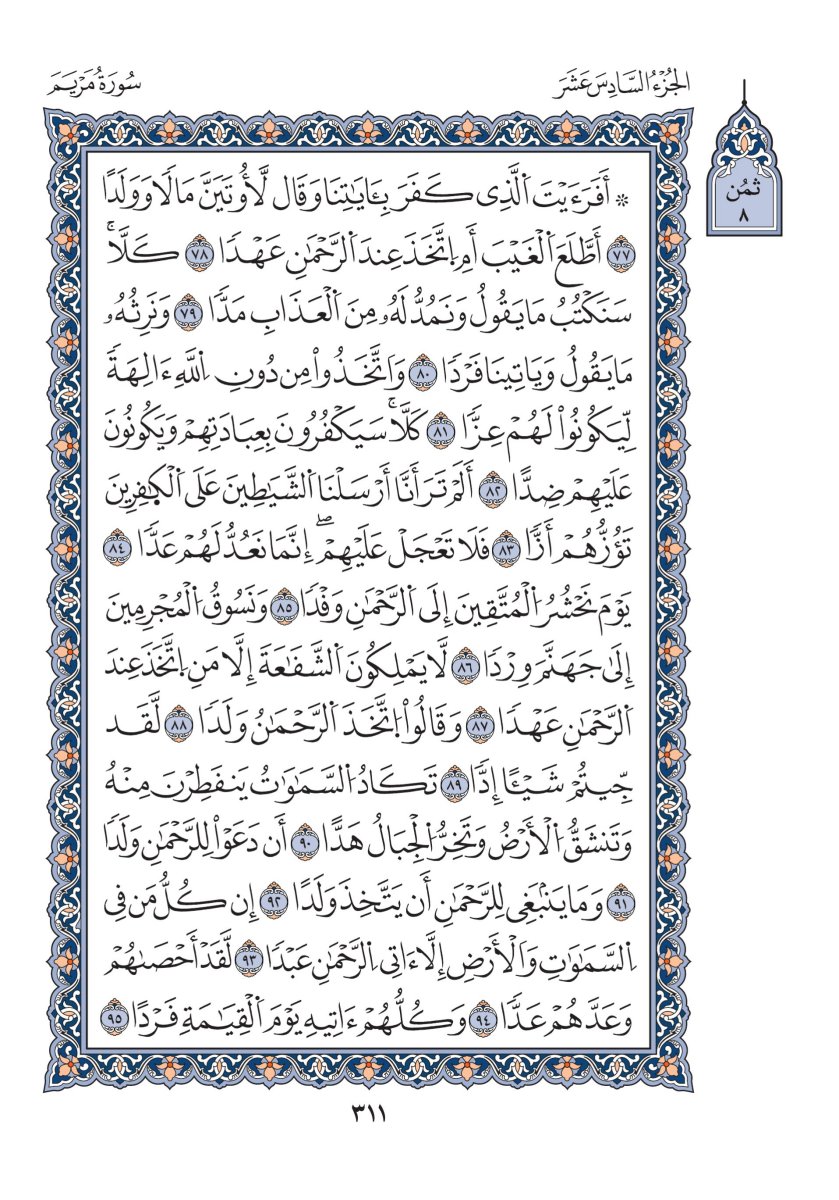 الجُزْءُ السَّادِسَ عَشَرَ
سُورَةُ مَرْيَمَ
ثمُن
٨
۞ أَفَرَءَيْتَ اَ۬لَّذِى كَفَرَ بِـَٔايَٰتِنَا وَقَال لَّأُوتَيَنَّ مَالًا وَوَلَدًا
٧٧ أَطَّلَعَ اَ۬لْغَيْبَ أَمِ اِ۪تَّخَذَ عِندَ اَ۬لرَّحْمَٰنِ عَهْدًا ٧٨ كَلَّاۚ
سَنَكْتُبُ مَا يَقُولُ وَنَمُدُّ لَهُۥ مِنَ اَ۬لْعَذَابِ مَدًّا ٧٩ وَنَرِثُهُۥ
مَا يَقُولُ وَيَاتِينَا فَرْدًا ٨٠ وَاَتَّخَذُواْ مِن دُونِ اِ۬للَّهِ ءَالِهَةً
لِّيَكُونُواْ لَهُمْ عِزًّا ٨١ كَلَّاۚ سَيَكْفُرُونَ بِعِبَادَتِهِمْ وَيَكُونُونَ
عَلَيْهِمْ ضِدًّا ٨٢ أَلَمْ تَرَ أَنَّا أَرْسَلْنَا اَ۬لشَّيَٰطِينَ عَلَى اَ۬لْكٰ۪فِرِينَ
تَؤُزُّهُمْ أَزًّا ٨٣ فَلَا تَعْجَلْ عَلَيْهِمْۖ إِنَّمَا نَعُدُّ لَهُمْ عَدًّا ٨٤
يَوْمَ نَحْشُرُ اُ۬لْمُتَّقِينَ إِلَى اَ۬لرَّحْمَٰنِ وَفْدًا ٨٥ وَنَسُوقُ اُ۬لْمُجْرِمِينَ
إِلَىٰ جَهَنَّمَ وِرْدًا ٨٦ لَّا يَمْلِكُونَ اَ۬لشَّفَٰعَةَ إِلَّا مَنِ اِ۪تَّخَذَ عِندَ
اَ۬لرَّحْمَٰنِ عَهْدًا ٨٧ وَقَالُواْ اُ۪تَّخَذَ اَ۬لرَّحْمَٰنُ وَلَدًا ٨٨ لَّقَد
جِّيتُمْ شَيْـًٔا إِدًّا ٨٩ تَكَادُ اُ۬لسَّمَٰوَٰتُ يَنفَطِرْنَ مِنْهُ
وَتَنشَقُّ اُ۬لْأَرْضُ وَتَخِرُّ اُ۬لْجِبَالُ هَدًّا ٩٠ أَن دَعَوْاْ لِلرَّحْمَٰنِ وَلَدًا
٩١ وَمَا يَنۢبَغِى لِلرَّحْمَٰنِ أَن يَتَّخِذَ وَلَدًا ٩٢ إِن كُلُّ مَن فِى
اِ۬لسَّمَٰوَٰتِ وَالْأَرْضِ إِلَّا ءَاتِى اِ۬لرَّحْمَٰنِ عَبْدًا ٩٣ لَّقَدْ أَحْصَىٰهُمْ
وَعَدَّهُمْ عَدًّا ٩٤ وَكُلُّهُمْ ءَاتِيهِ يَوْمَ اَ۬لْقِيَٰمَةِ فَرْدًا ٩٥
٣١١